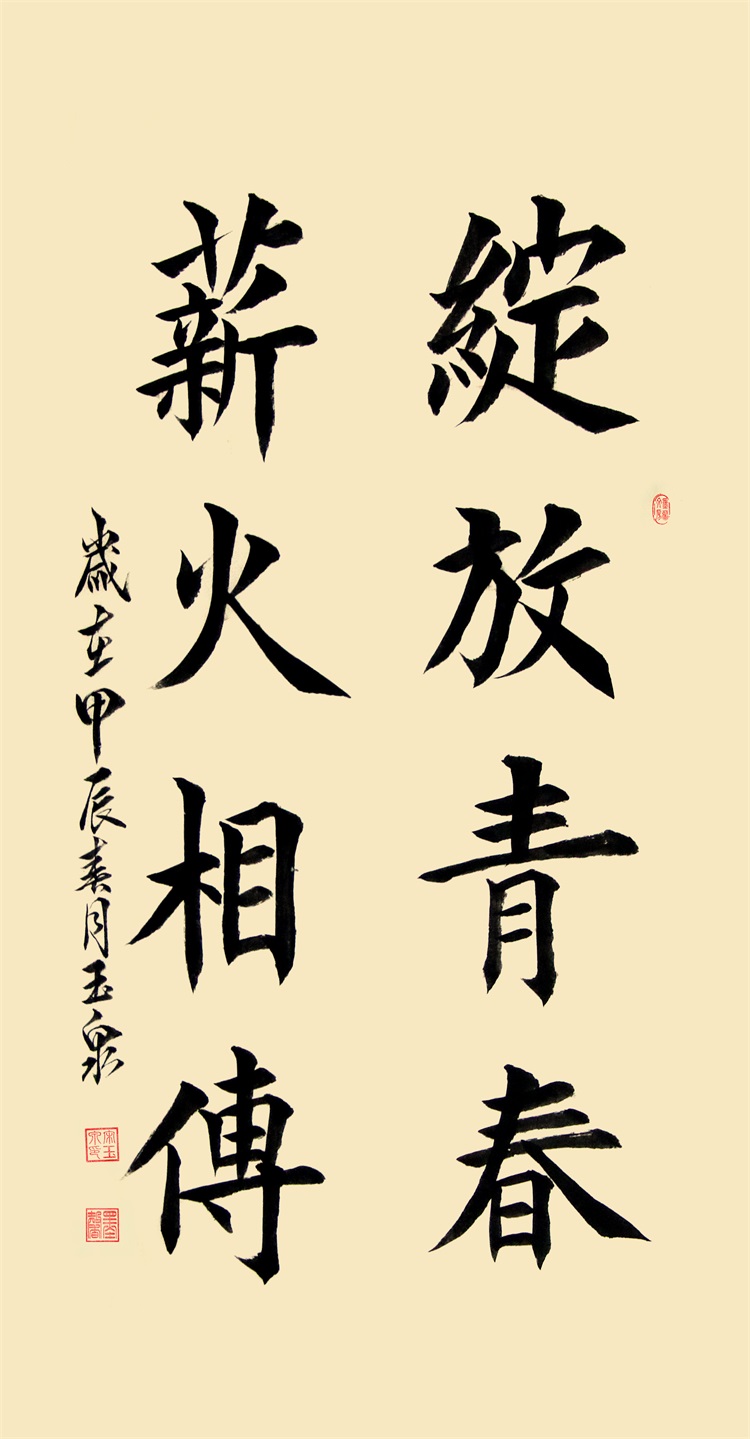 綻放青春
薪火相傳
歲在甲辰春月玉泉